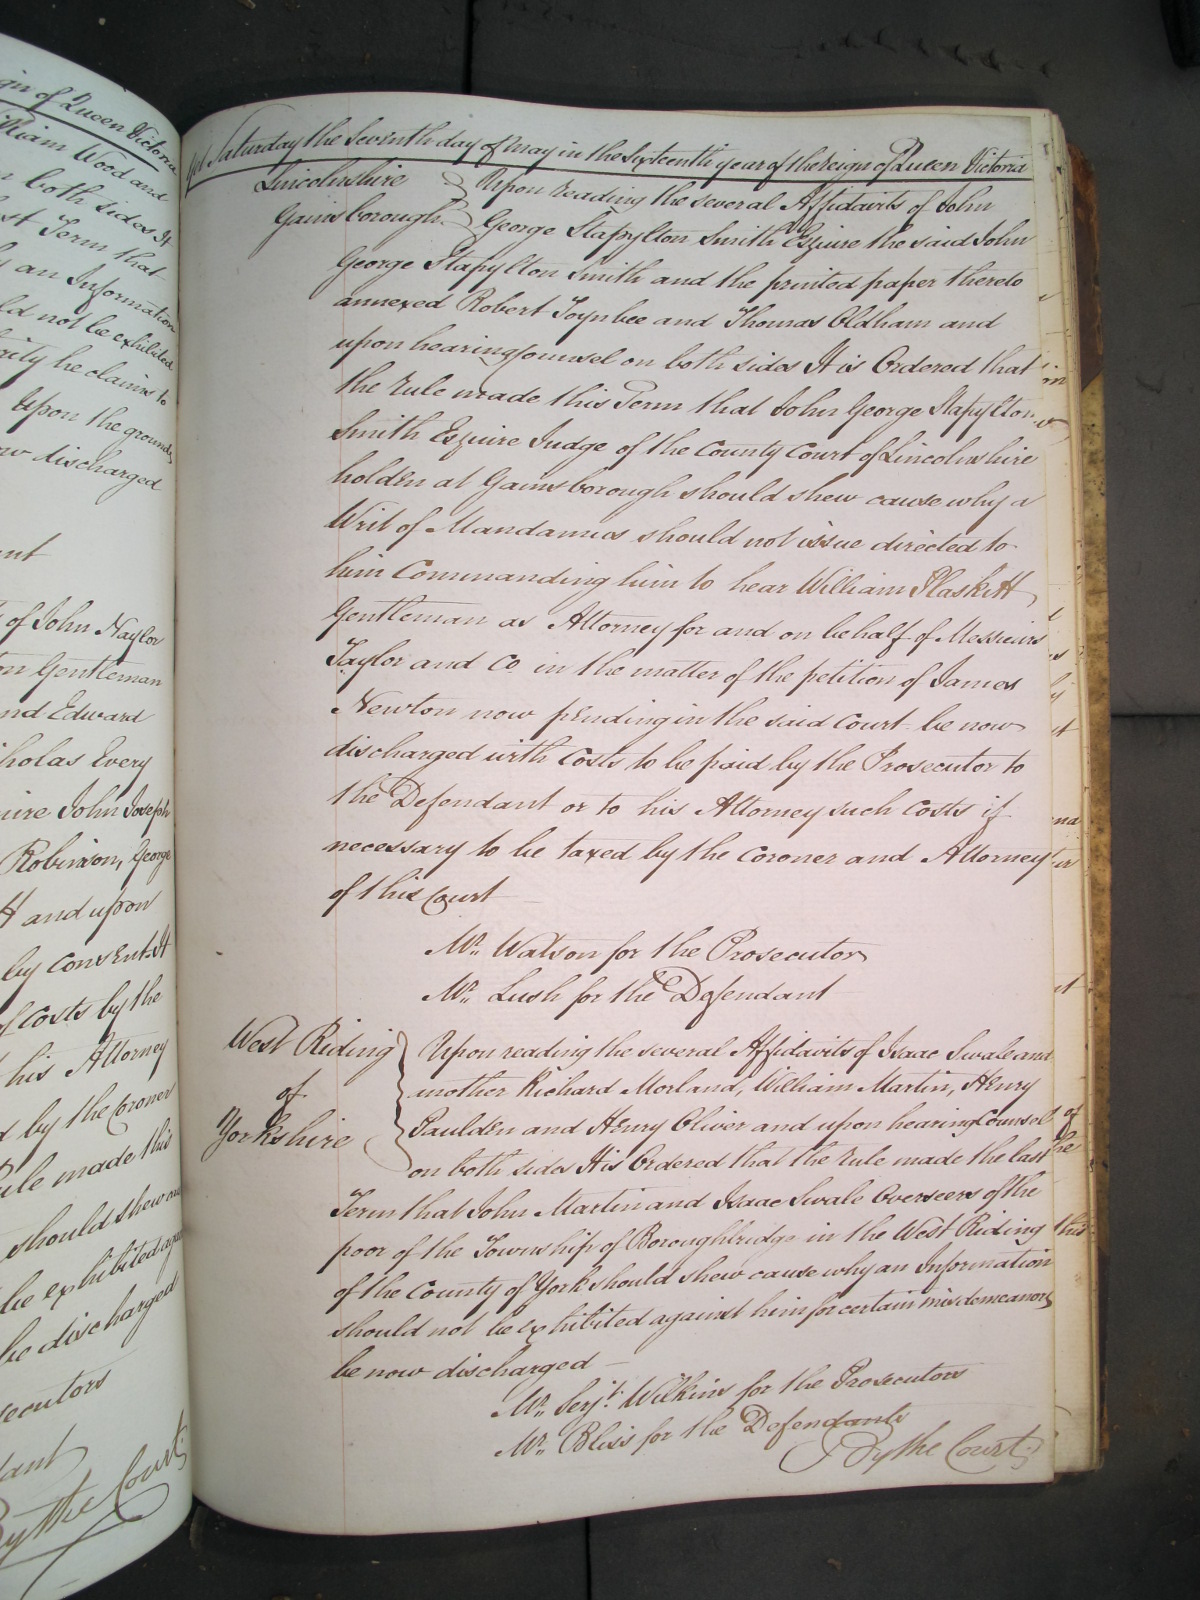 gn of Queen Victoria
William Wood and
n both sides It
st Term that
y an Information
ld not be exhibited
rity he claims to
Upon the grounds
ow discharged
ent
of John Naylor
on Gentleman
nd Edward
holas Every
uire John Joseph
Robinson, George
tt and upon
by consent It
of Costs by the
his Attorney
d by the Coroner
ule made this
should shew
be exhibited
be discharged
secutors
dant
By the Court
Yet Saturday the Seventh day of May in the Sixteenth year of the reign of Queen Victoria
Lincolnshire Upon reading the several Affidavits of John
Gainsborough George Stapylton Smith Esquire the said John
George Stapylton Smith and the printed paper thereto
annexed Robert Toynbee and Thomas Oldham and
upon hearing Counsel on both sides It is Ordered that
the Rule made this Term that John George Stapylton
Smith Esquire Judge of the County Court of Lincolnshire
holden at Gainsborough should shew cause why a
Writ of Mandamus should not issue directed to
him Commanding him to hear William Plaskitt
Gentleman as Attorney for and on behalf of Messieurs
Taylor and Co. in the matter of the petition of James
Newton now pending in the said Court be now
discharged with Costs to be paid by the Prosecutor to
the Defendant or to his Attorney such Costs if
necessary to be taxed by the Coroner and Attorney
of this Court
Mr. Watson for the Prosecutor
Mr. Lush for the Defendant
West Riding Upon reading the several Affidavits of Isaac Swale and
of another Richard Morland, William Martin, Henry
Yorkshire Paulden and Henry Oliver and upon hearing Counsel
on both sides It is Ordered that the Rule made the last
Term that John Martin and Isaac Swale Overseers of the
poor of the Township of Boroughbridge in the West Riding
of the County of York should shew cause why an Information
should not be exhibited against him for certain misdemeanors
be now discharged —
Mr. Serjt. Wilkins for the Prosecutors
Mr. Bliss for the Defendants
By the Court